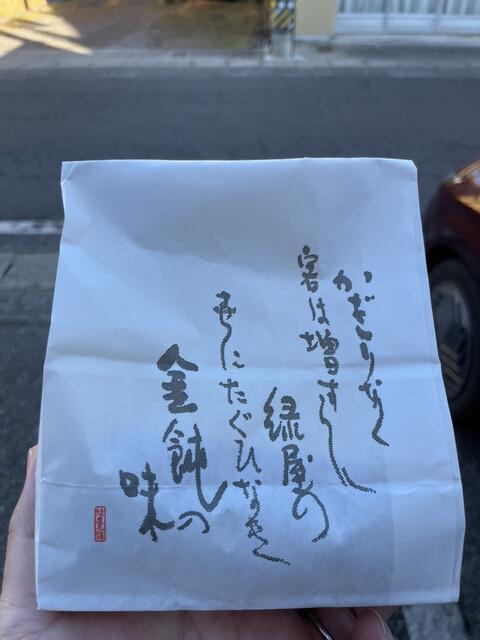 かぎりなく
客は増すらし
緑屋の
世にたぐひなき
金鈍の
味